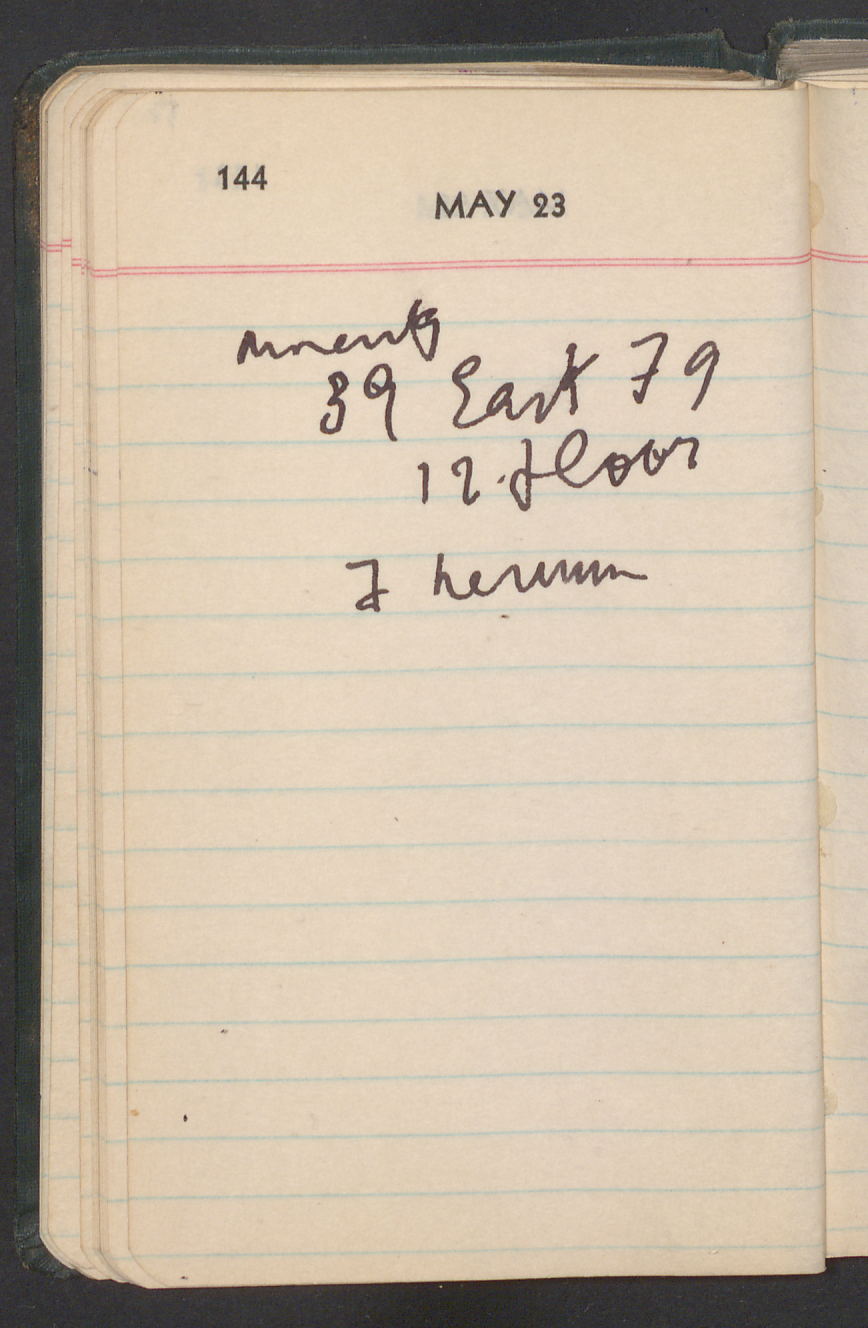 144
MAY 23
39 East 79
12. floor
7